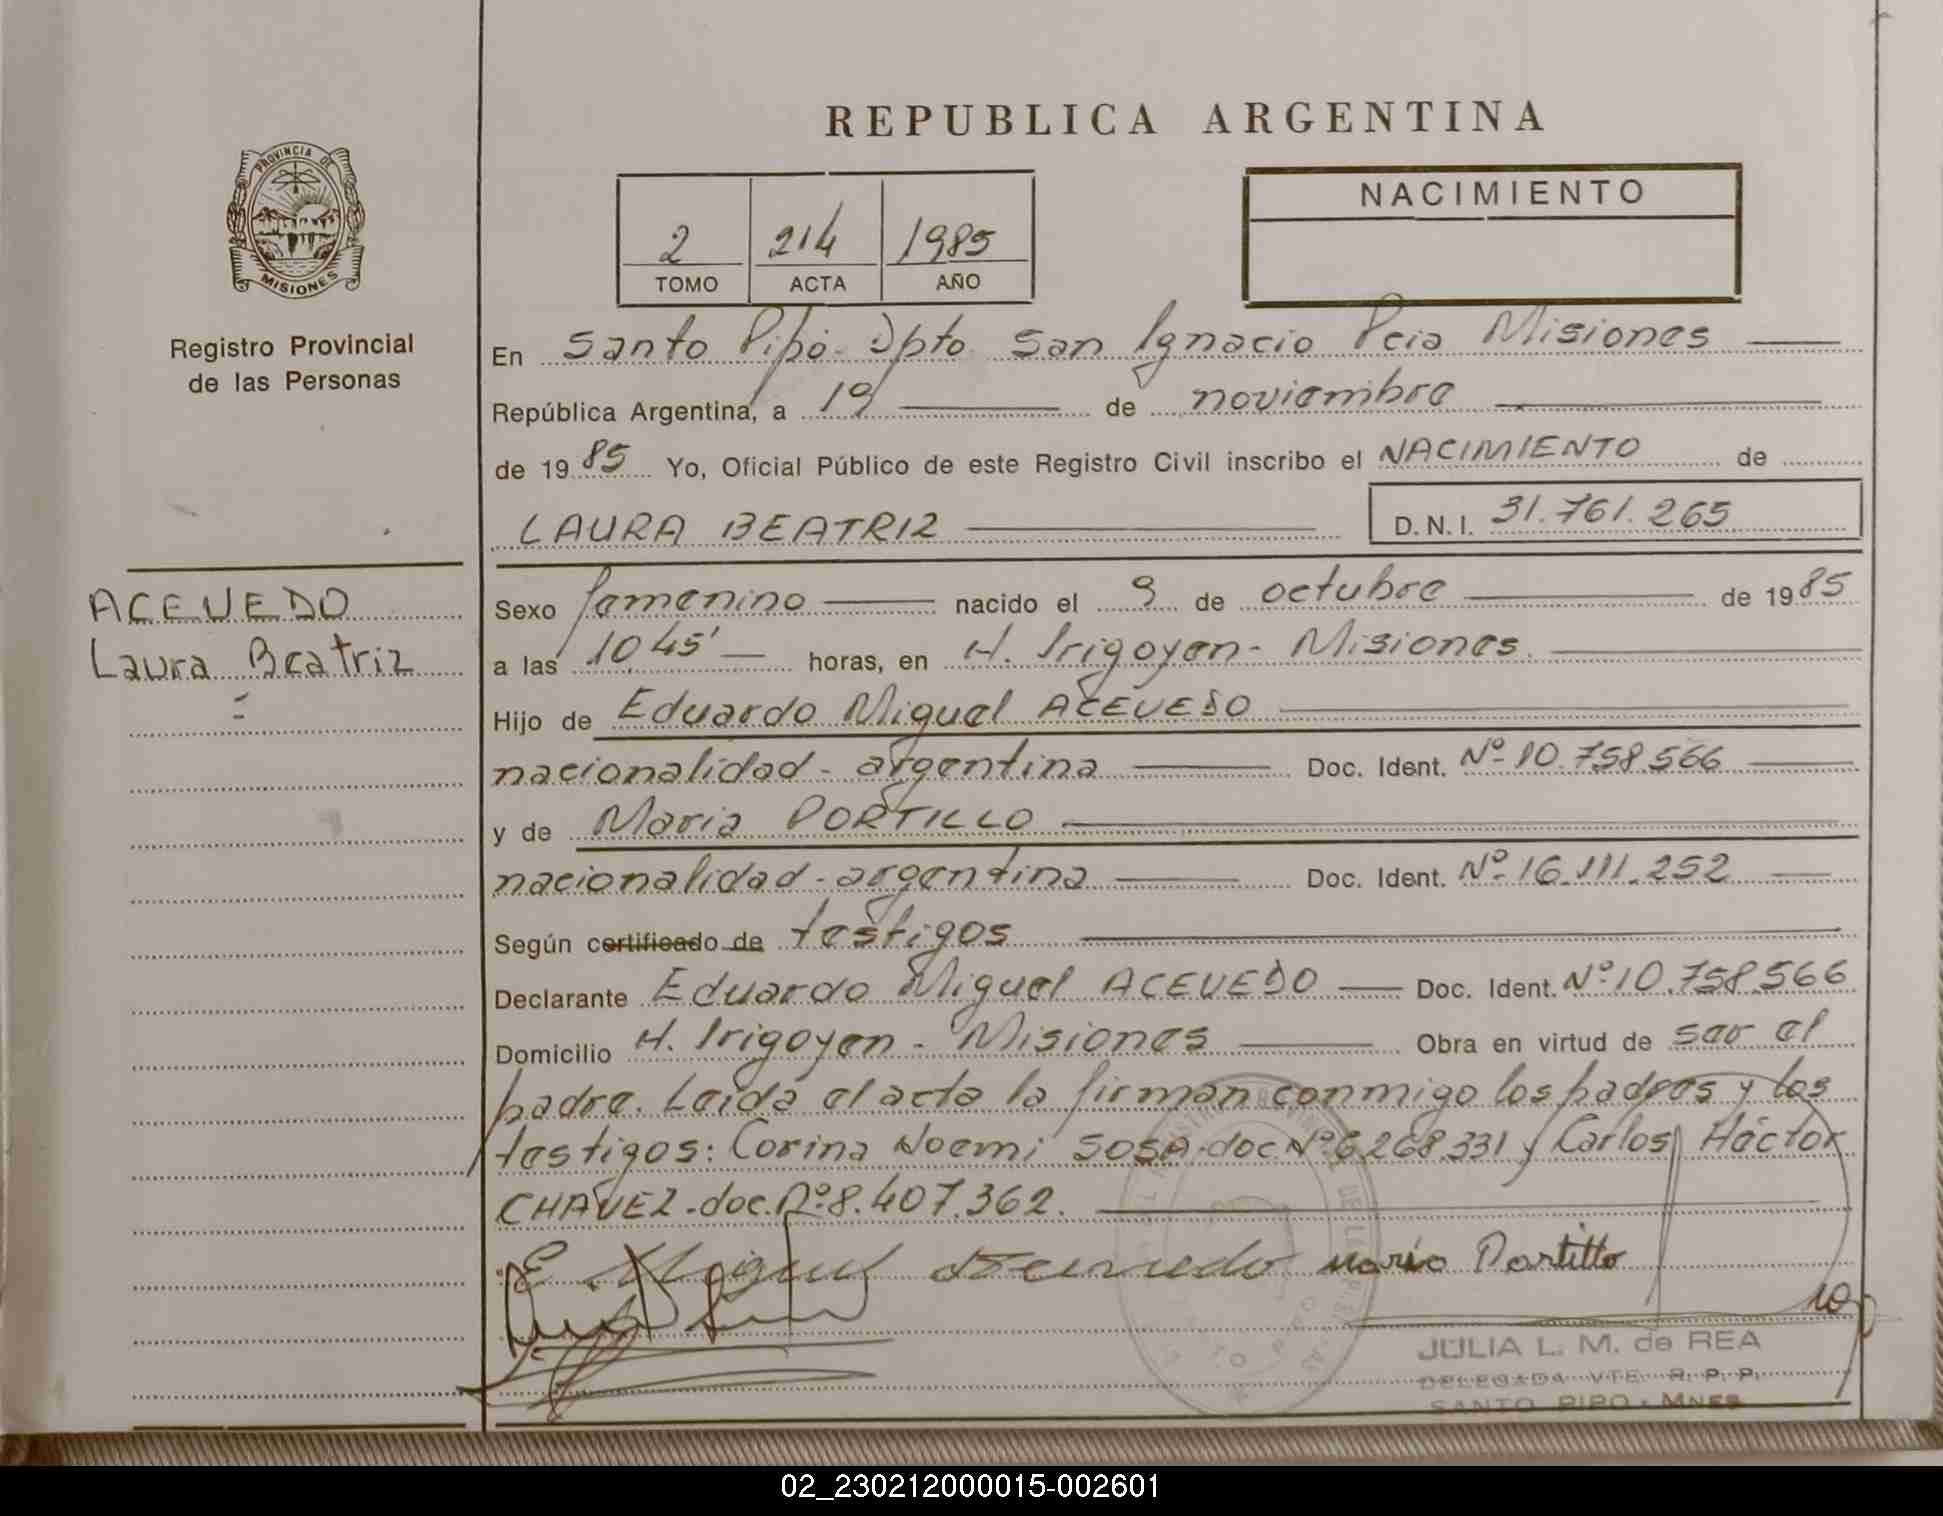 REPUBLICA ARGENTINA
PROVINCIA DE
MISIONES
Registro Provincial
de las Personas
2 214 1985
TOMO ACTA AÑO
NACIMIENTO
En Santo Pipó - Dpto San Ignacio Pcia Misiones
República Argentina, a 19 de noviembre
de 1985 Yo, Oficial Público de este Registro Civil inscribo el NACIMIENTO de
LAURA BEATRIZ D.N.I. 31.761.265
ACEVEDO
Laura Beatriz
Sexo femenino nacido el 9 de octubre de 1985
a las 10,45' horas, en H. Irigoyen - Misiones.
Hijo de Eduardo Miguel ACEVEDO
nacionalidad - argentina Doc. Ident. Nº 10.758.566
y de Maria PORTILLO
nacionalidad - argentina Doc. Ident. Nº 16.111.252
Según certificado de testigos
Declarante Eduardo Miguel ACEVEDO Doc. Ident. Nº 10.758.566
Domicilio H. Irigoyen - Misiones Obra en virtud de ser el
padre. Leida el acta la firman conmigo los padres y los
testigos: Corina Noemi SOSA - doc. Nº 6.268.331 y Carlos Héctor
CHAVEZ - doc. Nº 8.407.362.
E. Miguel Acevedo Maria Portillo
JULIA L. M. de REA
DELEGADA VTE. R. P. P.
SANTO PIPO - MNES
02_230212000015-002601